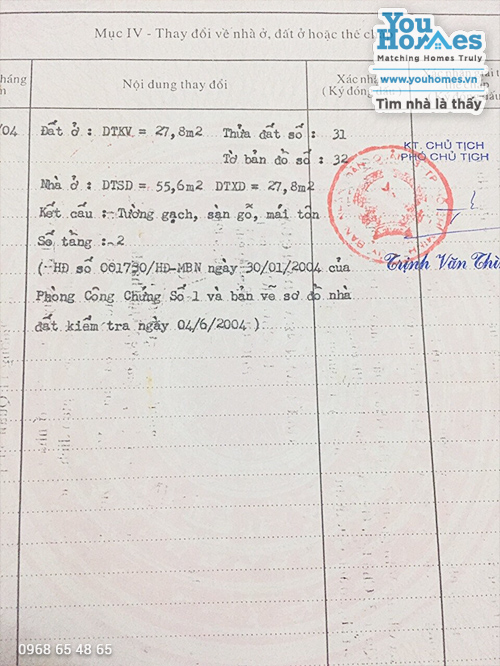 You
Homes
Matching Homes Truly
www.youhomes.vn
Tìm nhà là thấy
Mục IV - Thay đổi về nhà ở, đất ở hoặc thế ch
háng
Nội dung thay đổi
Xác nhậ
(Ký đóng dấu)
/04
Đất ở : DTKV = 27,8m2 Thửa đất số : 31
Tờ bản đồ số : 32
Nhà ở : DTSD = 55,6m2 DTXD = 27,8m2
Kết cấu : Tường gạch, sàn gỗ, mái tôn
Số tầng : 2
( HĐ số 061730/HĐ-MBN ngày 30/01/2004 của
Phòng Công Chứng Số 1 và bản vẽ sơ đồ nhà
đất kiểm tra ngày 04/6/2004 )
KT. CHỦ TỊCH
PHÓ CHỦ TỊCH
Trịnh Văn Thì
0968 65 48 65